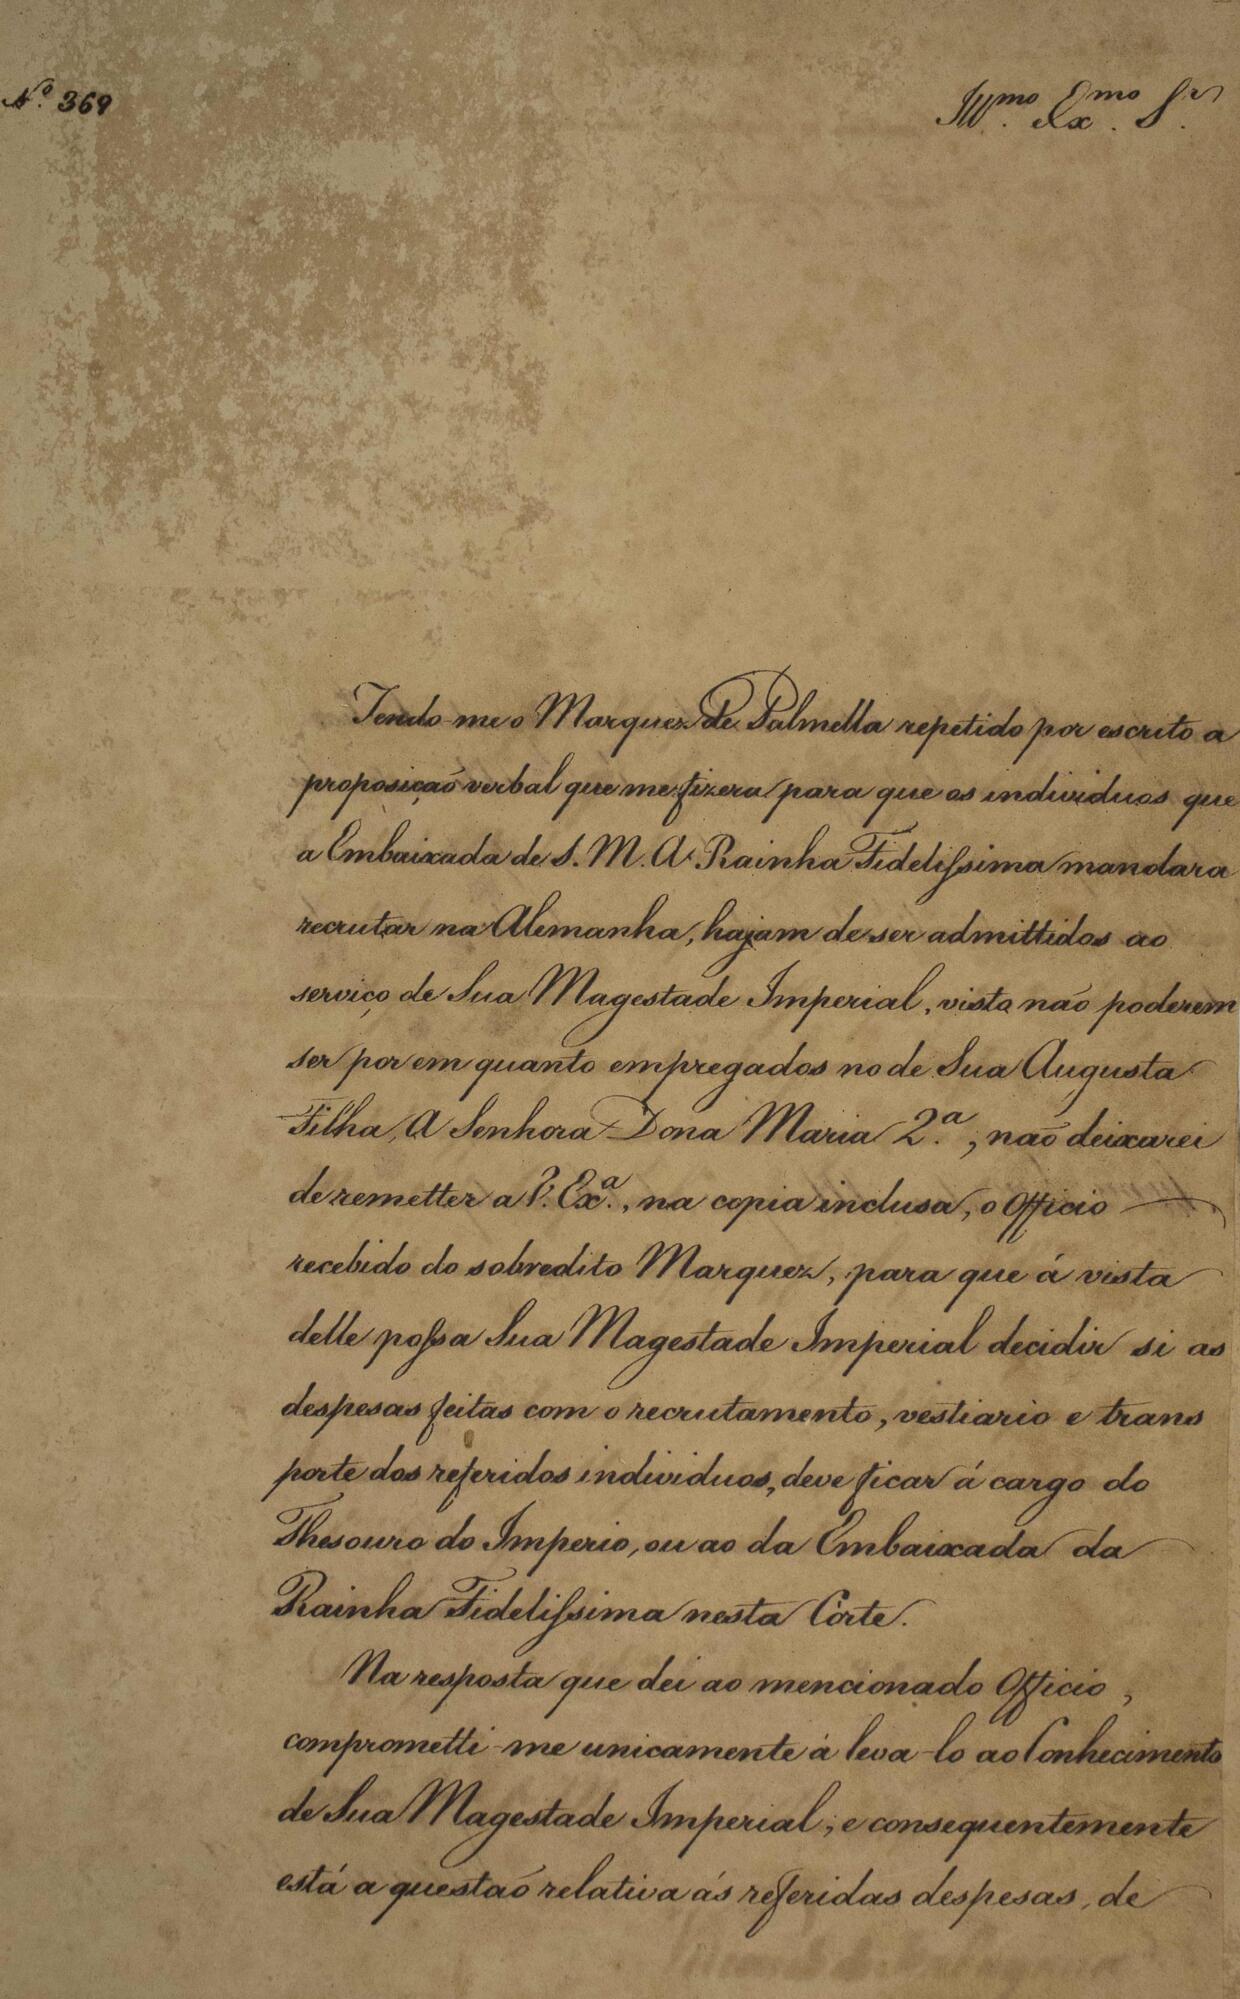 Nº. 369
Illmo. Exmo. Sr.
Tendo-me o Marquez de Palmella repetido por escrito a
proposição verbal que me fizera para que os individuos que
a Embaixada de S. M. A Rainha Fidelissima mandara
recrutar na Alemanha, hajam de ser admittidos ao
serviço de Sua Magestade Imperial, visto não poderem
ser por em quanto empregados no de Sua Augusta
Filha, A Senhora Dona Maria 2.ª, não deixarei
de remetter a V. Exª., na copia inclusa, o Officio
recebido do sobredito Marquez, para que á vista
delle possa Sua Magestade Imperial decidir si as
despesas feitas com o recrutamento, vestiario e trans
porte dos referidos individuos, deve ficar á cargo do
Thesouro do Imperio, ou ao da Embaixada da
Rainha Fidelissima nesta Côrte.
Na resposta que dei ao mencionado Officio,
comprometti-me unicamente á leva-lo ao Conhecimento
de Sua Magestade Imperial; e consequentemente
está a questão relativa ás referidas despesas, de